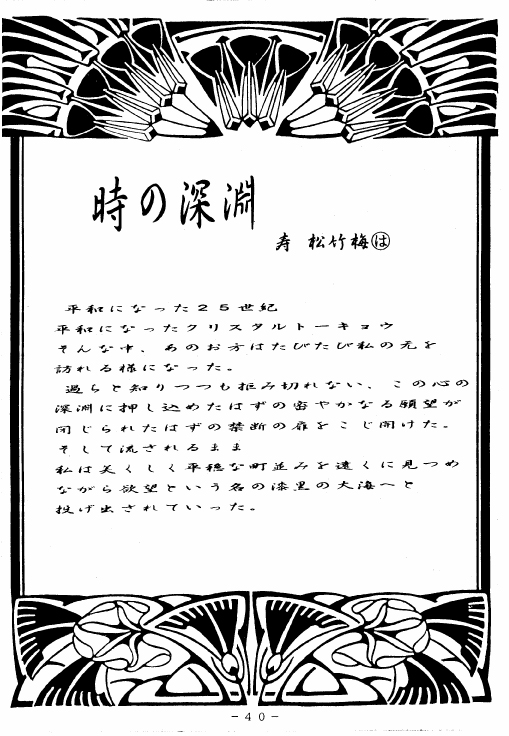 時の深淵
寿 松竹梅㋩
平和になった25世紀
平和になったクリスタルトーキョウ
そんな中、あのお方はたびたび私の元を
訪れる様になった。
過ちと知りつつも拒み切れない、この心の
深淵に押し込めたはずの密やかなる願望が
閉じられたはずの禁断の扉をこじ開けた。
そして流されるまま
私は美くしく平穏な町並みを遠くに見つめ
ながら欲望という名の漆黒の大海へと
投げ出されていった。
-40-